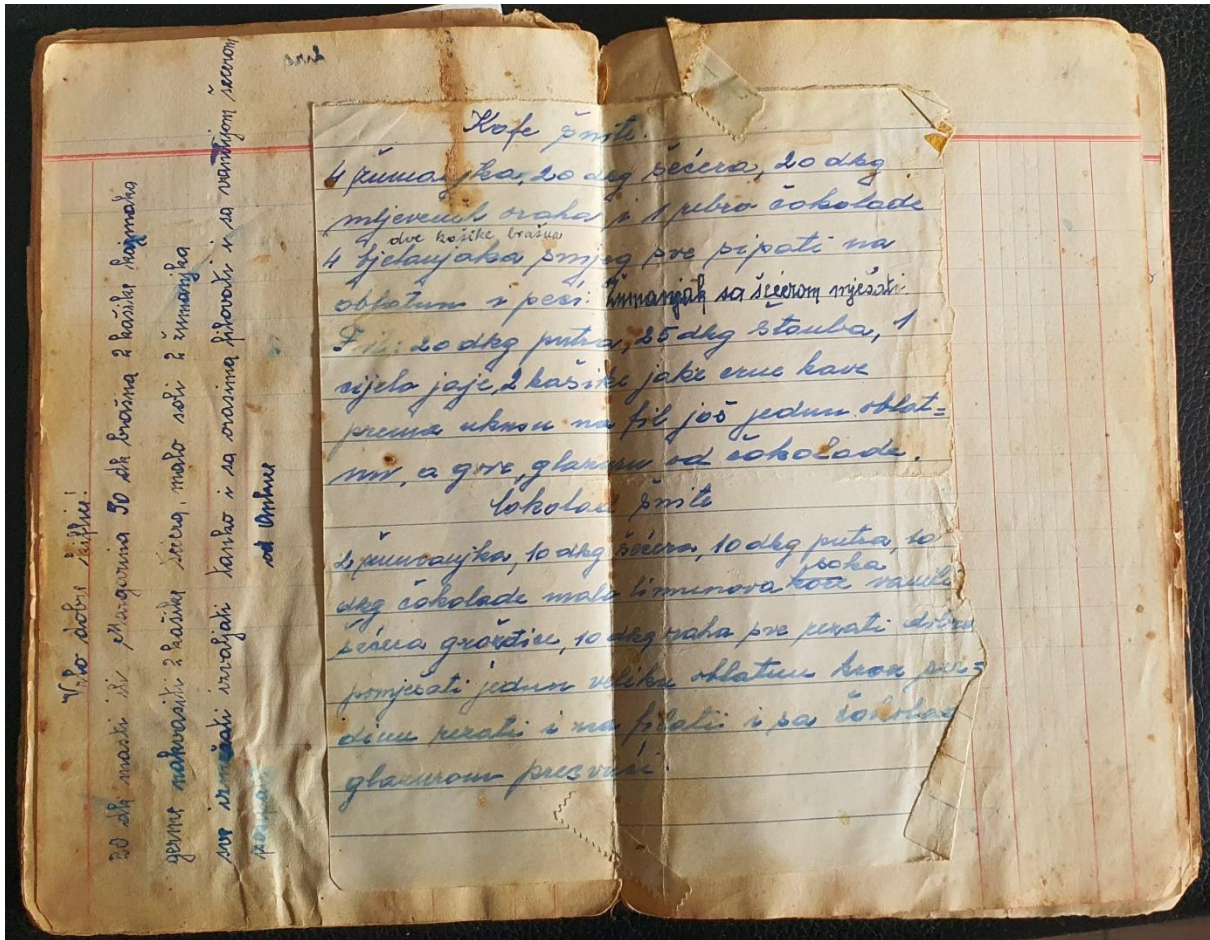 Vrlo dobre kiflice!
20 dk masti ili Margarina 50 dk brašna 2 kašike kajmaka
germe nakvasiti 2 kašike šećera, malo soli 2 žumanjka
sve izmešati izvaljati tanko i sa orasima filovati i sa vanilijom šećerom
posipati
od Ankice
Kofe šnite.
4 žumanjka, 20 dkg šećera, 20 dkg
mljevenih oraha i 1 rebro čokolade
dve kašike brašna
4 bjelanjaka snijeg sve sipati na
oblatum i peći. žumanjak sa šećerom mješati.
Fil: 20 dkg putra, 25 dkg štauba, 1
cijelo jaje, 2 kašike jake crne kave
prema ukusu na fil još jednu oblat=
nu, a gore, glazuru od čokolade.
čokolad šnite
2 žumanjka, 10 dkg šećera, 10 dkg putra, 10
soka
dkg čokolade malo limunova kore vanili
šećera grožđice, 10 dkg raha sve rezati dobro
pomješati jednu veliku oblatnu kroz sre=
dinu rezati i na filati i sa čokolad
glazurom presvući.